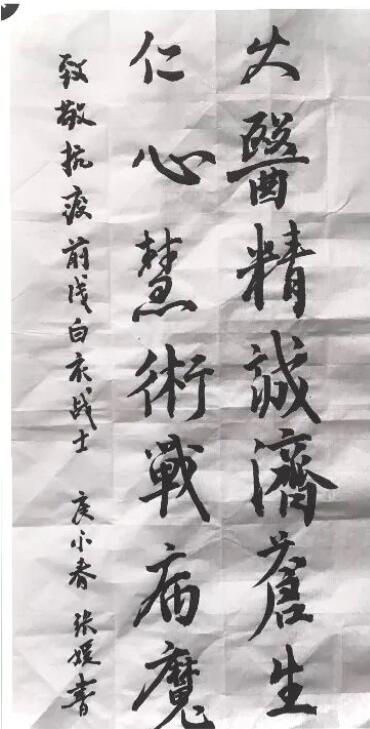 大醫精誠濟蒼生
仁心慧術戰病魔
致敬抗疫前线白衣战士 庚子春 张媛書